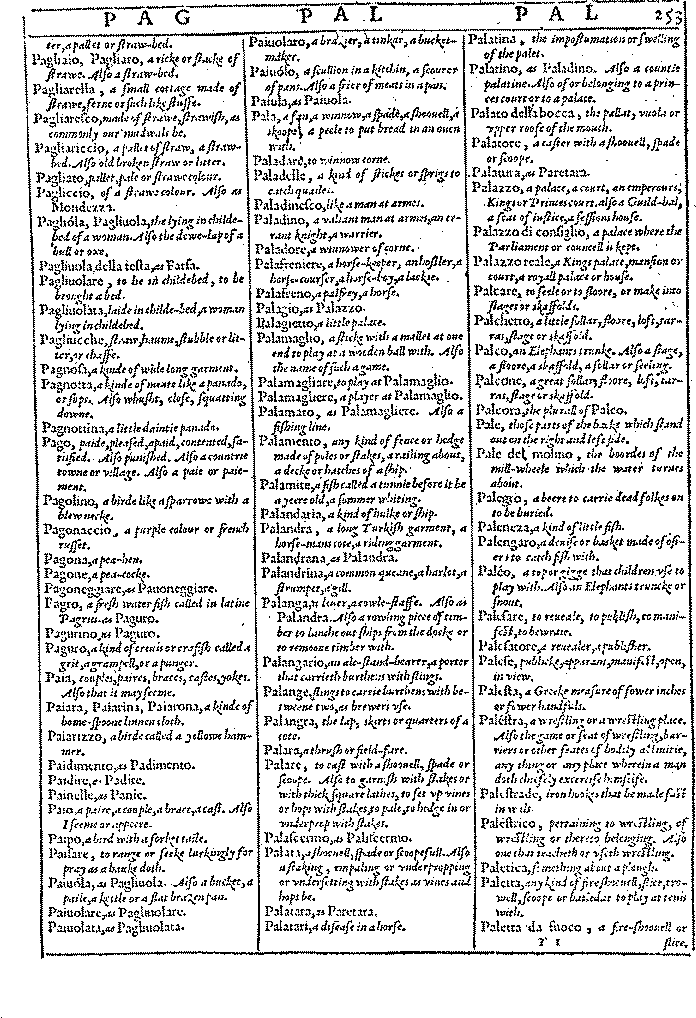 PAG PAL PAL 253
ter, a pallet or straw-bed.
Pagliaio, Pagliaro, a ricke or stacke of
strawe. Also a straw-bed.
Pagliarella, a small cottage made of
strawe, ferne or such like stuffe.
Pagliaresco, made of strawe, strawish, as
commonly our mudwals be.
Pagliariccio, a pallet of straw, a straw-
bed. Also old broken straw or litter.
Pagliato, pallet, pale or strawe colour.
Pagliccio, of a strawe colour. Also as
Mondezza.
Pagliola, Pagliuola, the lying in childe-
bed of a woman. Also the dewe-lap of a
bull or oxe.
Pagliuola della testa, as Farfa.
Pagliuolare, to be in childebed, to be
brought a bed.
Pagliuolata, laide in childe-bed, a woman
lying in childebed.
Pagliucche, straw, haume, stubble or lit-
ter, or chaffe.
Pagnosa, a kinde of wide long garment.
Pagnotta, a kinde of meate like a panado,
or sops. Also whusht, close, squatting
downe.
Pagnottina, a little daintie panada.
Pago, paide, pleased, apaid, contented, sa-
tisfied. Also punished. Also a countrie
towne or village. Also a paie or paie-
ment.
Pagolino, a birde like a sparrowe with a
blew necke.
Pagonaccio, a purple colour or french
russet.
Pagona, a pea-hen.
Pagone, a pea-cocke.
Pagoneggiare, as Pauoneggiare.
Pagro, a fresh water fish called in latine
Pagrus as Paguro.
Pagurino, as Paguro.
Paguro, a kind of creuis or crafish called a
grit, a grampell, or a punger.
Paia, couples, paires, braces, castes, yokes.
Also that it may seeme.
Paiara, Paiarina, Paiarona, a kinde of
home-spoone linnen cloth.
Paiarizzo, a birde called a yellowe ham-
mer.
Paidimento, as Padimento.
Paidire, as Padire.
Painelle, as Panie.
Paio, a paire, a couple, a brace, a cast. Also
I seeme or appeere.
Paipo, a bird with a forket taile.
Paissare, to range or seeke lurkingly for
pray as a hauke doth.
Paiuola, as Pagliuola. Also a bucket, a
paile, a kettle or a flat brazen pan.
Paiuolare, as Pagliuolare.
Paiuolata, as Pagliuolata.
Paiuolaro, a brazier, a tinkar, a bucket-
maker.
Paiuolo, a scullion in a kitchin, a scourer
of pans. Also a slice of meats in a pan.
Paiula, as Paiuola.
Pala, a fan, a winnow, a spade, a shouell, a
skoope, a peele to put bread in an ouen
with.
Paladare, to winnow corne.
Paladelle, a kind of stickes or sprigs to
catch quailes.
Paladinesco, like a man at armes.
Paladino, a valiant man at armes, an er-
rant knight, a warrier.
Paladore, a winnower of corne.
Palafreniere, a horse-keeper, an hostler, a
horse-courser, a horse-boy, a lackie.
Palafreno, a palfrey, a horse.
Palagio, as Palazzo.
Palagietto, a little palace.
Palamaglio, a sticke with a mallet at one
end to play at a wooden ball with. Also
the name of such a game.
Palamagliare, to play at Palamaglio.
Palamagliere, a player at Palamaglio.
Palamaro, as Palamagliere. Also a
fishing line.
Palamento, any kind of fence or hedge
made of poles or stakes, a railing about,
a decke or hatches of a ship.
Palamite, a fish called a tunnie before it be
a yeere old, a sommer whiting.
Palandaria, a kind of hulke or ship.
Palandra, a long Turkish garment, a
horse-mans cote, a riding garment.
Palandrana, as Palandra.
Palandrina, a common queane, a harlot, a
strumpet, a gill.
Palanga, a leuer, a cowle-staffe. Also as
Palandra. Also a rowing piece of tim-
ber to lanche out ships from the docke or
to remooue timber with.
Palangario, an ale-stand-bearer, a porter
that carrieth burthens with slings.
Palange, slings to carrie burthens with be-
tweene two, as brewers vse.
Palangra, the lap, skirts or quarters of a
cote.
Palara, a thrush or field-fare.
Palare, to cast with a shouell, spade or
scoope. Also to garnish with stakes or
with thick square lathes, to set vp vines
or hops with stakes, to pale, to hedge in or
vnderprop with stakes.
Palascermo, as Paliscermo.
Palata, a shouell, spade or scoopefull. Also
a staking, empaling or vnderpropping
or vndersetting with stakes as vines and
hops be.
Palatara, as Paretara.
Palatari, a disease in a horse.
Palatina, the impostumation or swelling
of the palet.
Palatino, as Paladino. Also a countie
palatine. Also of or belonging to a prin-
ces court or to a palace.
Palato della bocca, the pallat, vuola or
vpper roofe of the mouth.
Palatore, a caster with a shoouell, spade
or scoope.
Palatura, as Paretara.
Palazzo, a palace, a court, an emperours,
Kings or Princes court, also a Guild-hal,
a seat of iustice, a sessions house.
Palazzo di consiglio, a palace where the
Parliament or councell is kept.
Palazzo reale, a Kings palace, mansion or
court, a royall palace or house.
Palcare, to seele or to floore, or make into
stages or skaffolds.
Palchetto, a little sollar, floore, loft, tar-
ras, stage or skaffold.
Palco, an Elephants trunke. Also a stage,
a floore, a skaffold, a sollar or seeling.
Palcone, a great sollar, floore, loft, tar-
ras, stage or skaffold.
Palcora, the plurall of Palco.
Pale, those parts of the backe which stand
out on the right and left side.
Pale del molino, the boordes of the
mill-wheele which the water turnes
about.
Palegio, a beere to carrie dead folkes on
to be buried.
Paleneza, a kind of little fish.
Palengaro, a deuise or basket made of osi-
ers to catch fish with.
Paleo, a top or gigge that children vse to
play with. Also an Elephants truncke or
snout.
Palesare, to reueale, to publish, to mani-
fest, to bewraie.
Palesatore, a reuealer, a publisher.
Palese, publicke, apparant, manifest, open,
in view.
Palesta, a Greeke measure of fower inches
or fower handfuls.
Palestra, a wrestling or a wrestling place.
Also the game or feat of wrestling, bar-
riers or other feates of bodily actiuitie,
any thing or any place wherein a man
doth chiefely excercise himselfe.
Palestrade, iron hookes that be made fast
in wals.
Palestrico, pertaining to wrestling, of
wrestling or thereto belonging. Also
one that teacheth or vseth wrestling.
Paletica, something about a plough.
Paletta, any kind of fire shoouell, slice, tro-
well, scoope or battledor to play at tenis
with.
Paletta da fuoco, a fire-shoouell or
Y 1 slice,